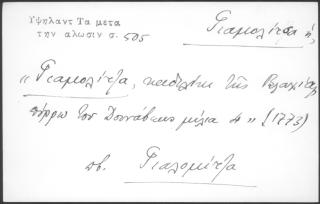 Υψηλαντ Τα μετα
την αλωσιν σ. 505
Γιαμολίτζα ἡ,
« Γιαμολίτζα, καδιλίκι τῆς Βλαχίας
πόρρω τοῦ Δουνάβεως μίλια 4 » (1773)
πβ. Γιαλομίτζα